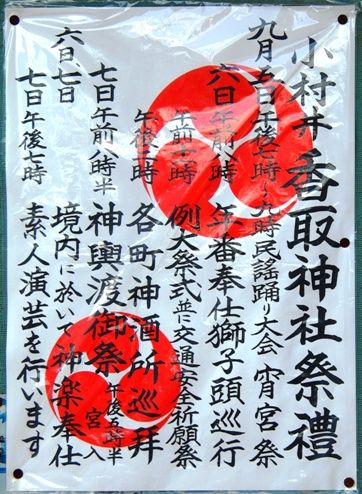 小村井香取神社祭禮
九月五日午後七時〜九時民謡踊り大会 宵宮祭
六日午前八時 年番奉仕獅子頭巡行
午前十時 例大祭式並に交通安全祈願祭
午後二時 各町神酒所巡拝
七日午前八時半 神輿渡御祭 午後五時半宮入
六日七日 境内に於いて神楽奉仕
七日午後七時 素人演芸を行います